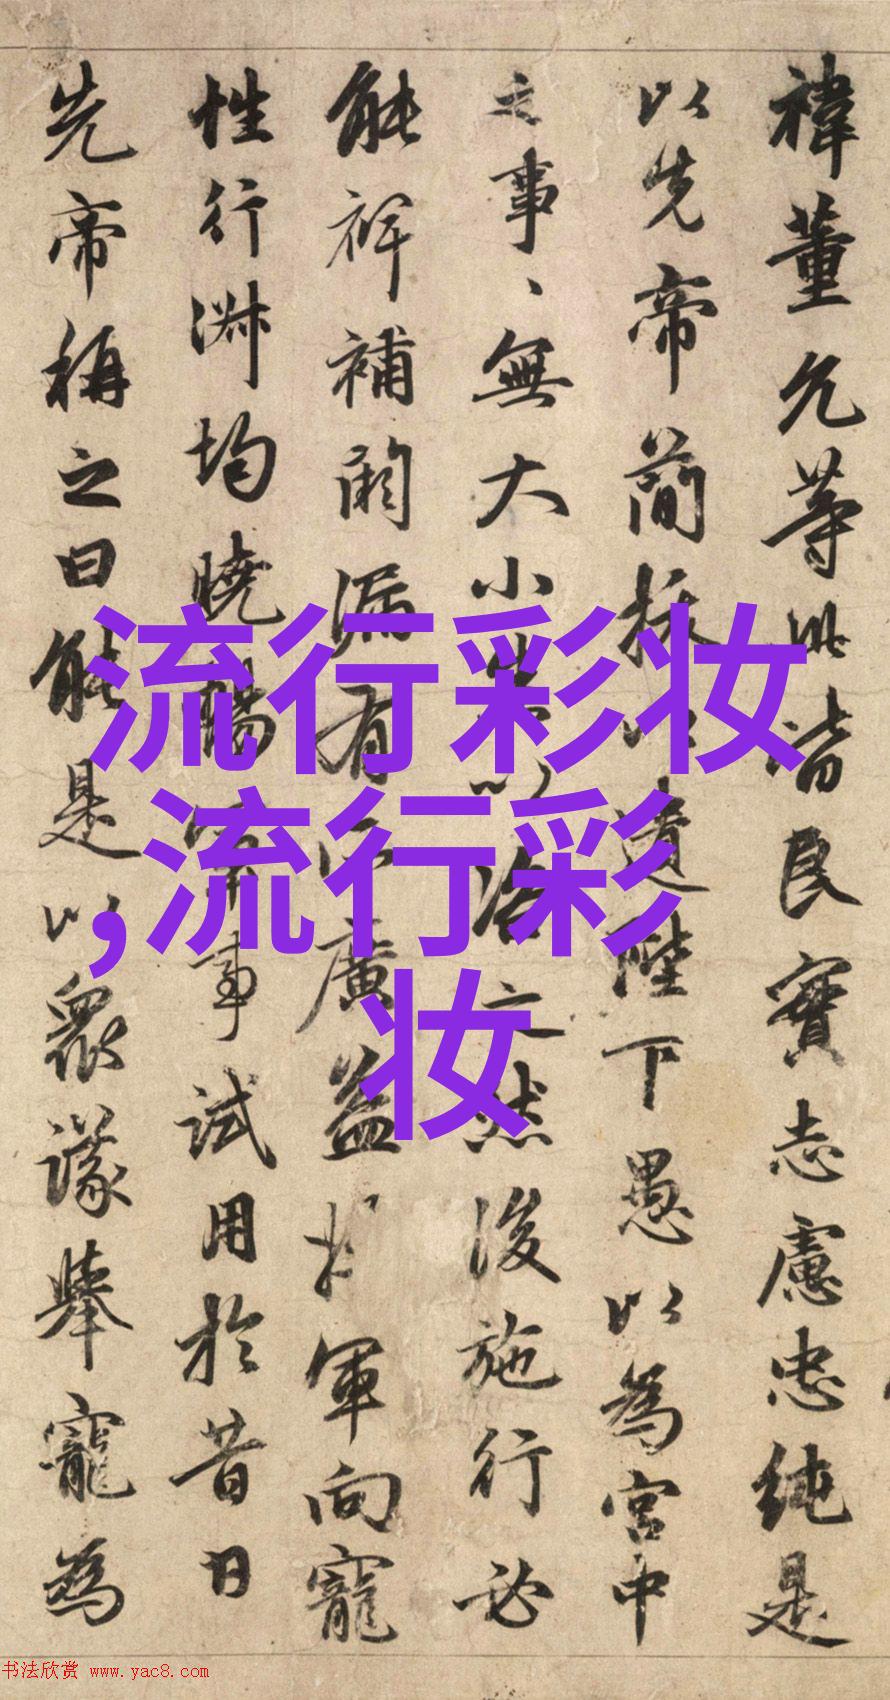 禕董允等此皆良實志慮忠純是
以先帝簡拔以遺陛下愚以為宮中
之事、無大小悉以咨之然後施行必
能裨補闕漏有所廣益軍向寵
性行淋均曉暢軍事試用於昔日
先帝稱之曰能是以衆議舉寵為
流行彩妆
,流行彩
妆
书法欣赏 www.yac8.com